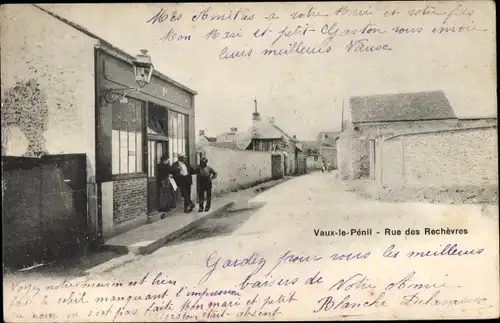 Mes Amitiés à votre Mari et votre fils
Mon Mari et petit Gaston vous envoie
leurs meilleurs Vause
Vaux-le-Pénil - Rue des Rechèvres
Gardez pour vous les meilleurs
baisers de Votre Amie
Blanche
Voyez notre maison est bien
fait le soleil manquant l'impression
nous ne s'est pas faite Mon mari et petit
Gaston était absent